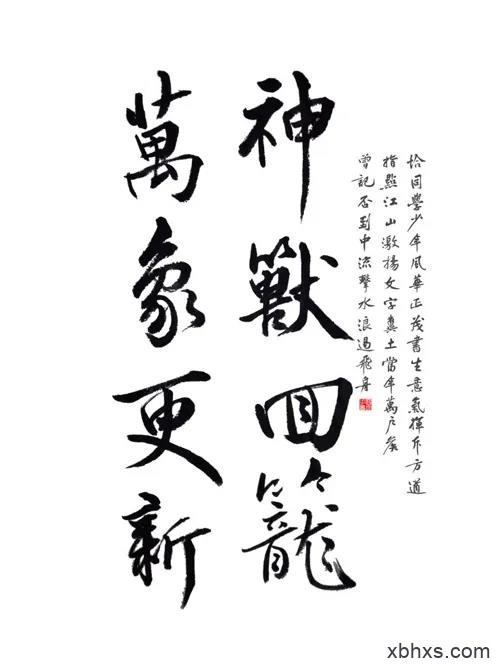 恰同學少年風華正茂書生意氣揮斥方遒
指點江山激揚文字糞土當年萬戶侯
曾記否到中流擊水浪遏飛舟
神獸回籠
萬象更新
xbhxs.com